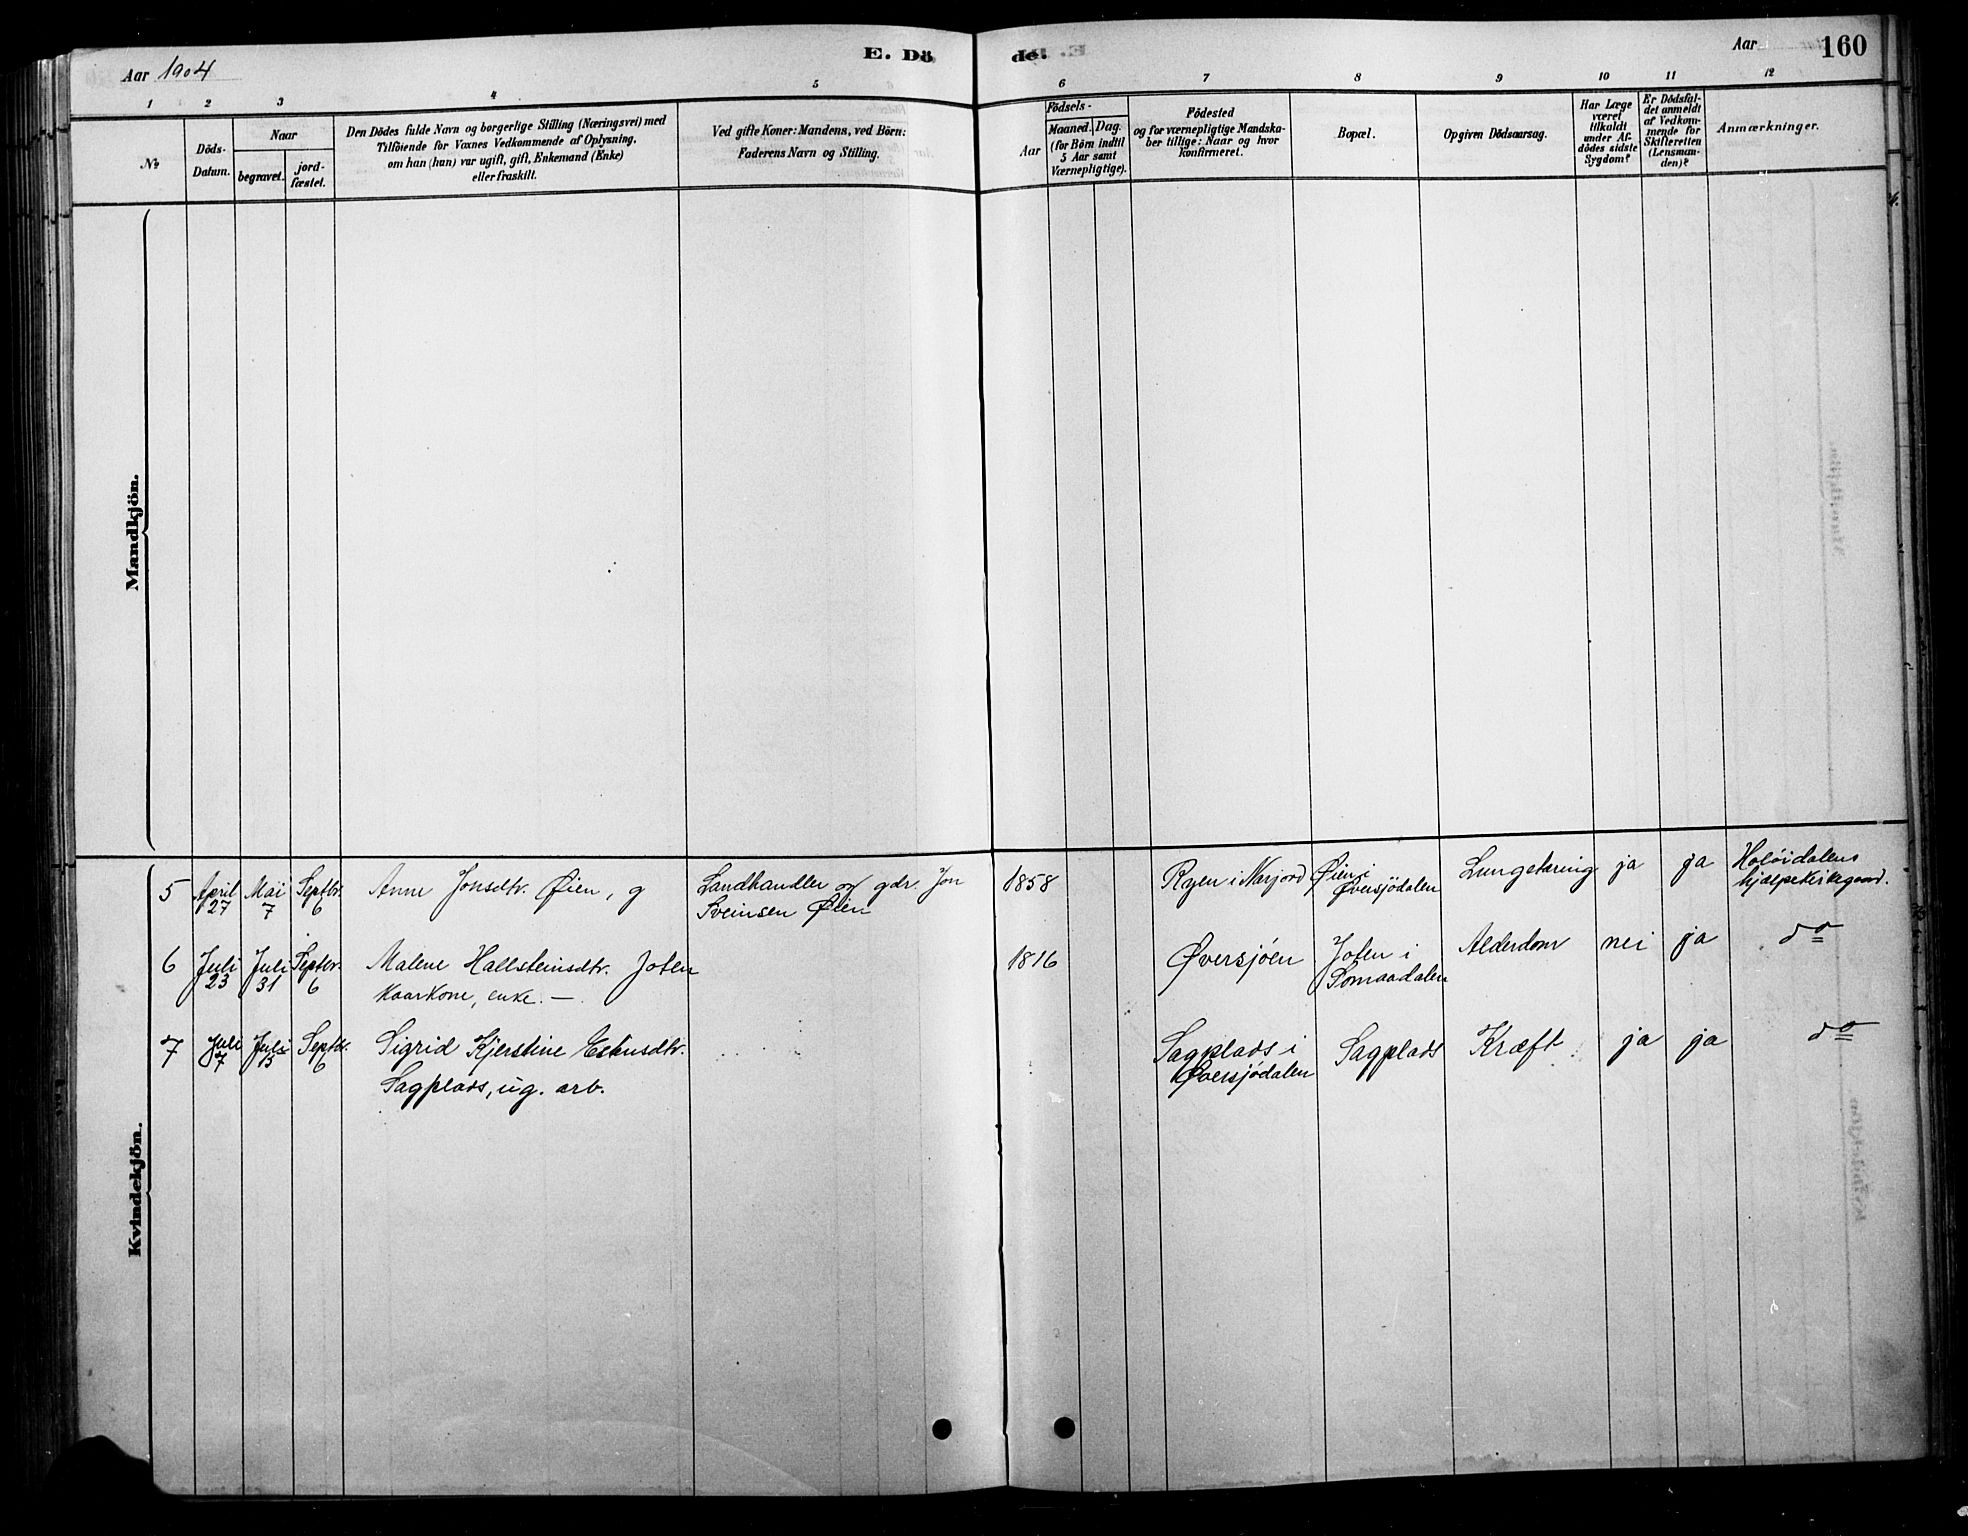 Aar 1904
E. Dö
de.
Aar
160
1
2
3
4
5
6
7
8
9
10
11
12
№
Döds-
Datum.
Naar
begravet.
jord-
fæstet.
Den Dödes fulde Navn og borgerlige Stilling (Næringsvei) med
Tilföiende for Voxnes Vedkommende af Oplysning,
om han (hun) var ugift, gift, Enkemand (Enke)
eller fraskilt.
Ved gifte Koner: Mandens, ved Börn:
Faderens Navn og Stilling.
Aar
Födsels-
Maaned.
Dag.
(for Börn indtil
5 Aar samt
Værnepligtige).
Födested
og for værnepligtige Mandska-
ber tillige: Naar og hvor
konfirmeret.
Bopæl.
Opgiven Dödsaarsag.
Har Læge
været
tilkaldt
under Af-
dödes sidste
Sygdom?
Er Dödsfal-
det anmeldt
af Vedkom-
mende for
Skifteretten
(Lensman-
den)?
Anmærkninger.
Mandkjön.
Kvindekjön.
5
April
27
Mai
7
Septbr.
6
Anne Jonsdtr. Øien, g
Landhandler og gdr. Jon
Sveinsen Øien
1858
Ryen i Narjord
Øien i
Øversjödalen
Lungetæring
ja
ja
Holöidalens
hjælpekirkegaard.
6
Juli
23
Juli
31
Septbr.
6
Malene Hallsteinsdtr. Joten
kaarkone, enke. —
1816
Øversjöen
Joten i
Sömaadalen
Alderdom
nei
ja
do
7
Juli
7
Juli
15
Septbr.
6
Sigrid Kjerstine Eskusdtr.
Sagplads, ug. arb.
Sagplads i
Øversjödalen
Sagplads
Kræft
ja
ja
do